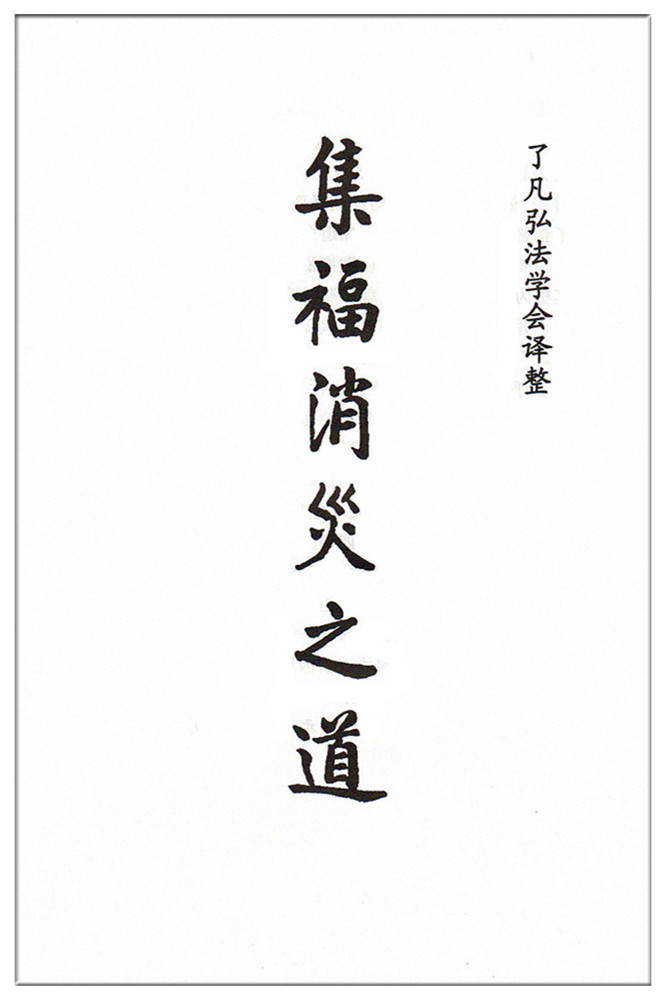 了凡弘法学会译整
集福消災之道